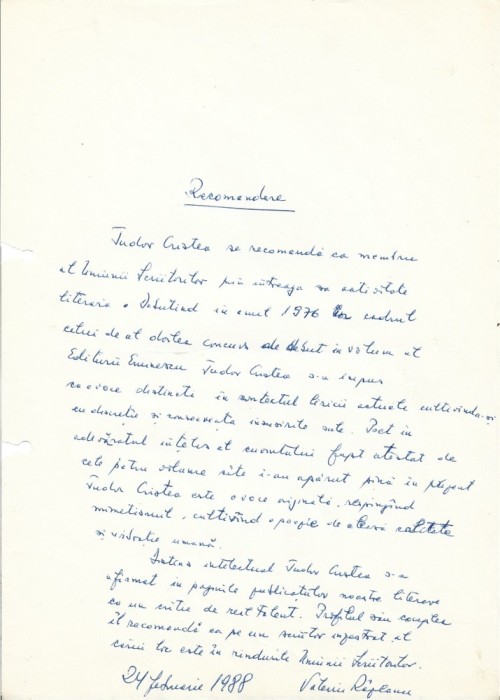 Recomandare
Tudor Cristea se recomandă ca membru
al Uniunii Scriitorilor prin întreaga sa activitate
literară. Debutînd în anul 1976 în cadrul
celui de al doilea concurs de debut în volum al
Editurii Eminescu Tudor Cristea s-a impus
ca o voce distinctă în contextul liricii actuale cultivîndu-și
cu discreție și consecvență însușirile sale. Poet în
adevăratul înțeles al cuvîntului fapt atestat de
cele patru volume cîte i-au apărut pînă în prezent
Tudor Cristea este o voce originală, respingînd
mimetismul, cultivînd o poezie de aleasă calitate
și vibrație umană.
intelectual Tudor Cristea s-a
afirmat în paginile publicațiilor noastre literare
ca un critic de real talent. Profilul său complex
îl recomandă ca pe un scriitor înzestrat al
cărui loc este în rîndurile Uniunii Scriitorilor.
24 februarie 1988 Valeriu Râpeanu